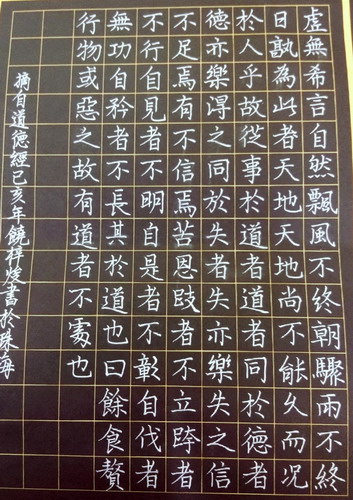 虛無希言自然飄風不終朝驟雨不終
日孰為此者天地天地尚不能久而況
於人乎故從事於道者道者同於德者
德亦樂淂之同於失者失亦樂失之信
不足焉有不信焉苦恩跂者不立跨者
不行自見者不明自是者不彰自伐者
無功自矜者不長其於道也曰餘食贅
行物或惡之故有道者不處也
摘自道德經已亥年饒梓書於珠海